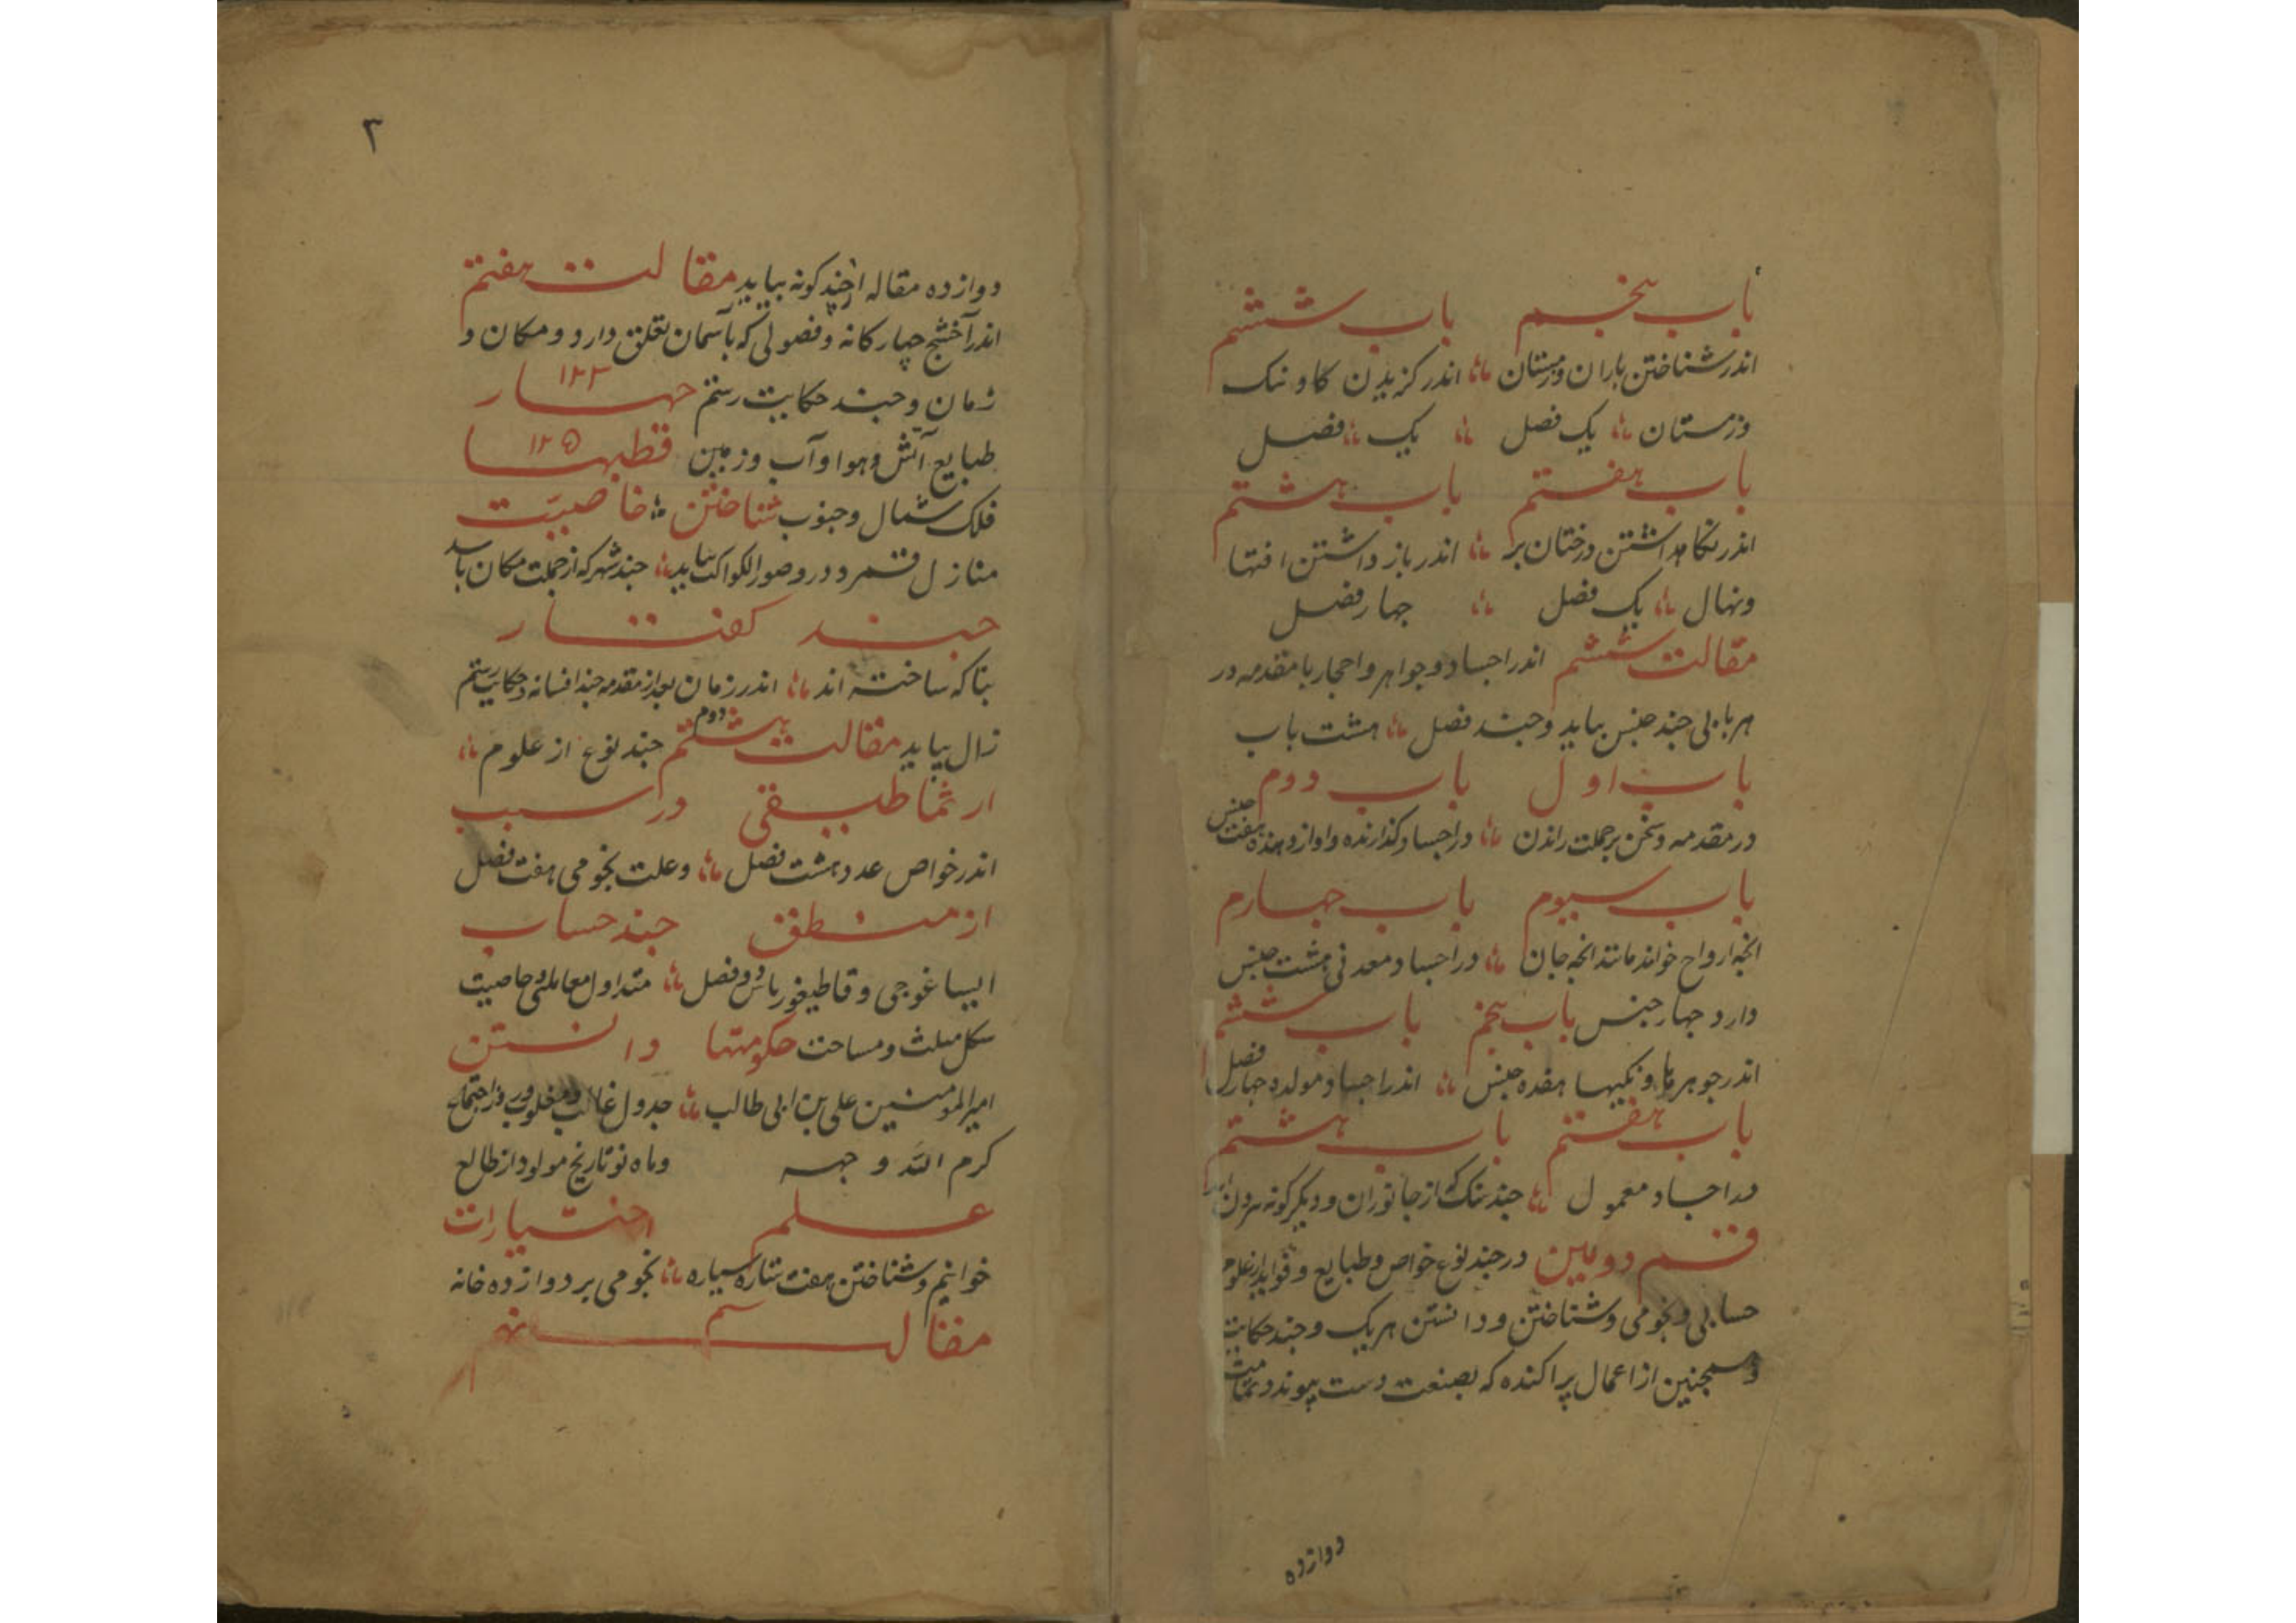 باب پنجم باب ششم
اندر شناختن باران و زمستان اندر کزیدن کاو نیک
وزمستان یک فصل یک فصل
باب هفتم باب هشتم
اندر نکاه داشتن درختان بر اندر باز داشتن افتها
ونهال یک فصل جهار فصل
مقالت ششم اندر اجساد و جواهر و احجار با مقدمه در
هر بابی جند جنس بیاید و جند فصل هشت باب
باب اول باب دوم
در مقدمه و سخن بر جملت راندن در اجساد کذارنده هفت جنس
باب سیوم باب جهارم
انجه ارواح خواند مانند انجه جان در اجساد معدنی هشت جنس
دارد جهار جنس باب پنجم باب ششم
اندر جوهرها هفده جنس اندر اجساد مولده جهار فصل
باب هفتم باب هشتم
در اجساد معمول جند سنک که از جانوران و دیکر کونه
قسم دویین در جند نوع خواص و طبایع و فواید از علوم
حسابی و نجومی و شناختن و دانستن هر یک و جند حکایت
وهمجنین از اعمال پراکنده که بصنعت دست پیوندد
دوازده
۳
دوازده مقاله از جند کونه بیاید مقالت هفتم
اندر آخشیج جهارکانه و فصولی که بآسمان تعلق دارد و مکان و
زمان و جند حکایت رستم جهار ۱۲۳
طبایع آتش و هوا و آب و زمین قطبها ۱۲۵
فلک شمال و جنوب شناختن خاصیت
منازل قمر و در و صور الکواکب بیاید جند شهر که از جملت مکان باشد
جند کفتار
بتا که ساخته اند اندر زمان بعد از مقدمه جند افسانه و حکایت رستم
زال بیاید مقالت هشتم دوم جند نوع از علوم
ارثماطیقی در سبب
اندر خواص عدد هشت فصل وعلت نجومی هفت فصل
از منطق جند حساب
ایساغوجی و قاطیغوریاس دو فصل متداول معاملی و خاصیت
شکل مثلث و مساحت حکومتها دانستن
امیر المومنین علی بن ابی طالب جدول غالب و مغلوب و اجتماع
کرم الله وجهه وماه نو تاریخ مولود از طالع
علم اختیارات
خوانیم و شناختن هفت ستاره سیاره نجومی بر دوازده خانه
مقالت نهم